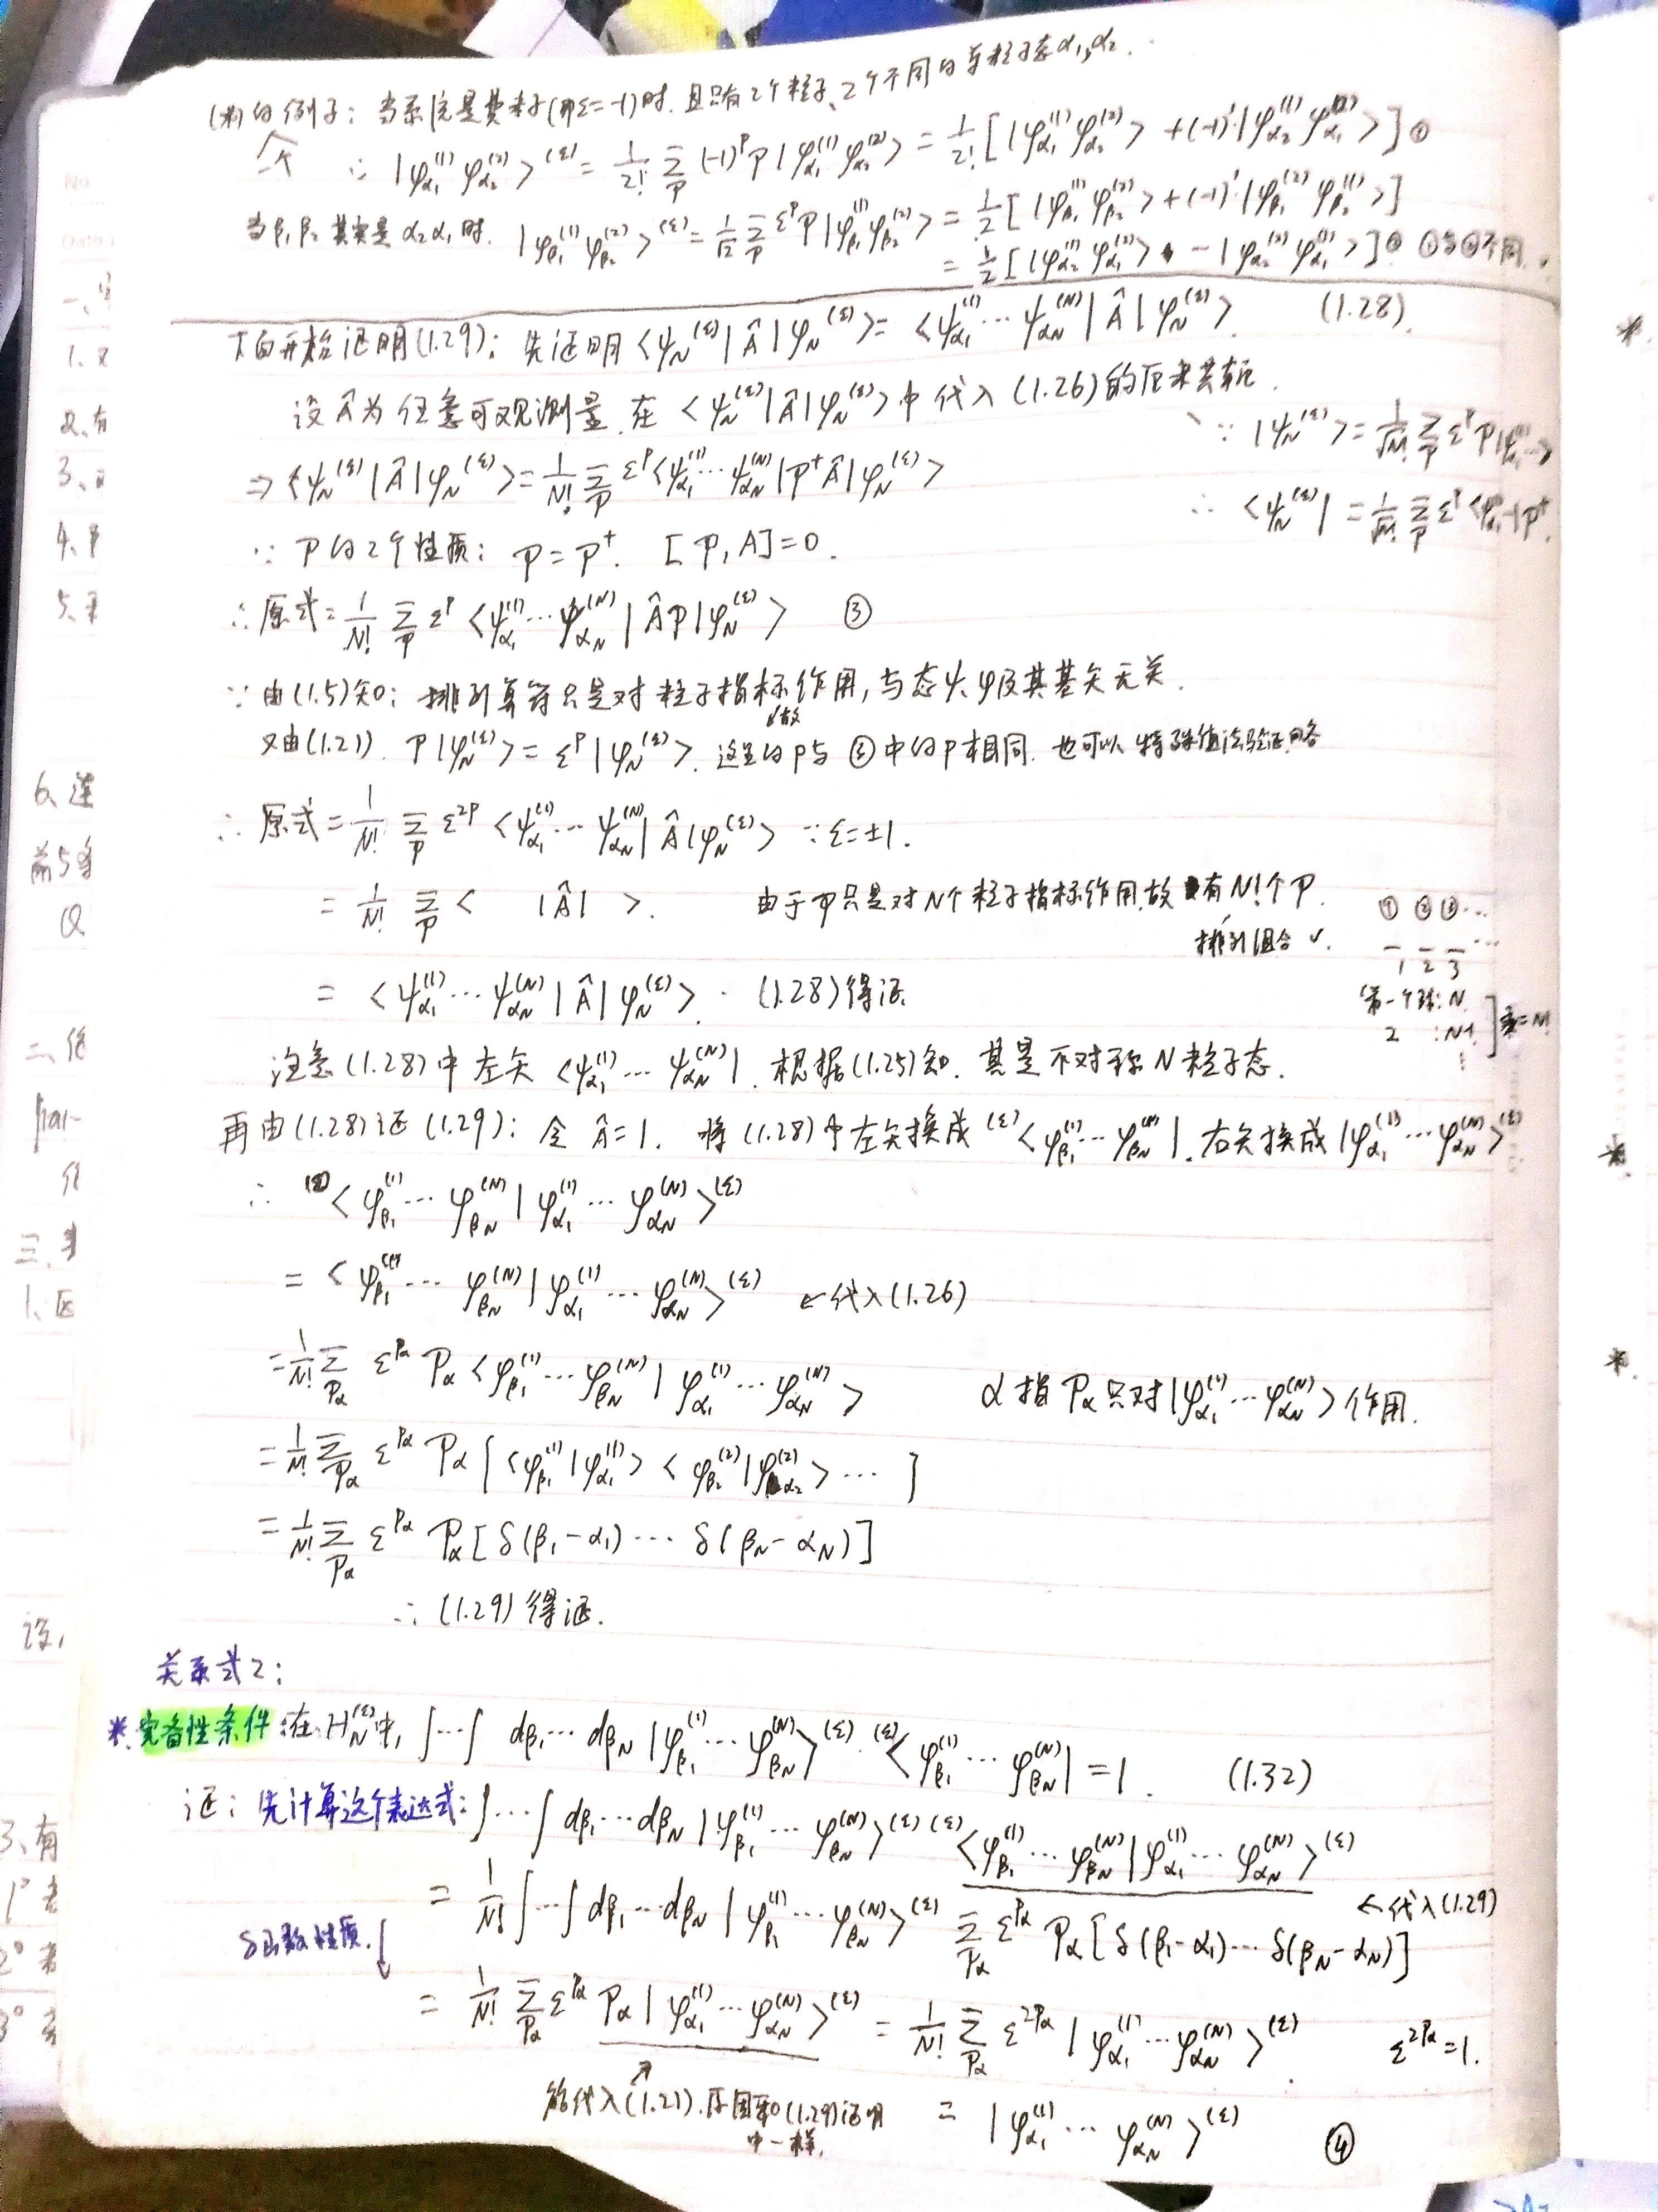 (*)的例子：当系统是费米子(即ε=-1)时，且只有2个粒子、2个不同的单粒子态α₁,α₂.
∴ |φ_{α₁}^{(1)} φ_{α₂}^{(2)}>^{(ε)} = 1/2! Σ_P (-1)^P P|φ_{α₁}^{(1)} φ_{α₂}^{(2)}> = 1/2! [|φ_{α₁}^{(1)} φ_{α₂}^{(2)}> + (-1)^1 |φ_{α₂}^{(1)} φ_{α₁}^{(2)}>] ①
当β₁β₂其实是α₂α₁时. |φ_{β₁}^{(1)} φ_{β₂}^{(2)}>^{(ε)} = Σ_P ε^P P|φ_{β₁}^{(1)} φ_{β₂}^{(2)}> = 1/2 [|φ_{β₁}^{(1)} φ_{β₂}^{(2)}> + (-1)^1 |φ_{β₁}^{(2)} φ_{β₂}^{(1)}>]
= 1/2 [|φ_{α₂}^{(1)} φ_{α₁}^{(2)}> - |φ_{α₂}^{(2)} φ_{α₁}^{(1)}>] ② ①与②不同.
下面开始证明(1.29)：先证明 <ψ_N^{(ε)}|Â|φ_N^{(ε)}> = <ψ_{α₁}^{(1)} ··· ψ_{αN}^{(N)}|Â|φ_N^{(ε)}> (1.28).
设Â为任意可观测量. 在 <ψ_N^{(ε)}|Â|φ_N^{(ε)}> 中代入(1.26)的厄米共轭.
∵ |ψ_N^{(ε)}> = 1/N! Σ_P ε^P P|ψ_{α₁}^{(1)}···>
⇒ <ψ_N^{(ε)}|Â|φ_N^{(ε)}> = 1/N! Σ_P ε^P <ψ_{α₁}^{(1)} ··· ψ_{αN}^{(N)}|P⁺Â|φ_N^{(ε)}>
∴ <ψ_N^{(ε)}| = 1/N! Σ_P ε^P <ψ_{α₁}···|P⁺.
∵ P的2个性质：P=P⁺. [P,A]=0.
∴ 原式 = 1/N! Σ_P ε^P <ψ_{α₁}^{(1)} ··· ψ_{αN}^{(N)}|ÂP|φ_N^{(ε)}> ③
∵ 由(1.5)知：排列算符只是对粒子指标作用, 与态ψ、φ及其基矢无关.
又由(1.21). P|φ_N^{(ε)}> = ε^P|φ_N^{(ε)}>. 这里的P与③中的P相同. 也可以特殊值法验证,略
∴ 原式 = 1/N! Σ_P ε^{2P} <ψ_{α₁}^{(1)} ··· ψ_{αN}^{(N)}|Â|φ_N^{(ε)}> ∵ ε=±1.
= 1/N! Σ_P < |Â| >. 由于P只是对N个粒子指标作用,故有N!个P.
排列组合 ✓.
① ② ③ ···
1 2 3 ···
第一个球：N
2 ：N-1
⋮
= <ψ_{α₁}^{(1)} ··· ψ_{αN}^{(N)}|Â|φ_N^{(ε)}>. (1.28)得证.
注意(1.28)中左矢 <ψ_{α₁}^{(1)} ··· ψ_{αN}^{(N)}|. 根据(1.25)知. 其是不对称N粒子态.
再由(1.28)证(1.29)：令Â=1. 将(1.28)中左矢换成 ^{(ε)}<φ_{β₁}^{(1)} ··· φ_{βN}^{(N)}|. 右矢换成 |φ_{α₁}^{(1)} ··· φ_{αN}^{(N)}>^{(ε)}
∴ ^{(ε)}<φ_{β₁}^{(1)} ··· φ_{βN}^{(N)}|φ_{α₁}^{(1)} ··· φ_{αN}^{(N)}>^{(ε)}
= <φ_{β₁}^{(1)} ··· φ_{βN}^{(N)}|φ_{α₁}^{(1)} ··· φ_{αN}^{(N)}>^{(ε)} ← 代入(1.26)
= 1/N! Σ_{Pα} ε^{Pα} Pα <φ_{β₁}^{(1)} ··· φ_{βN}^{(N)}|φ_{α₁}^{(1)} ··· φ_{αN}^{(N)}> α指Pα只对|φ_{α₁}^{(1)} ··· φ_{αN}^{(N)}>作用.
= 1/N! Σ_{Pα} ε^{Pα} Pα [<φ_{β₁}^{(1)}|φ_{α₁}^{(1)}> <φ_{β₂}^{(2)}|φ_{α₂}^{(2)}> ···]
= 1/N! Σ_{Pα} ε^{Pα} Pα [δ(β₁-α₁) ··· δ(βN-αN)]
∴ (1.29)得证.
关系式2：
*完备性条件：在H_N^{(ε)}中, ∫···∫ dβ₁···dβN |φ_{β₁}^{(1)} ··· φ_{βN}^{(N)}>^{(ε)} · ^{(ε)}<φ_{β₁}^{(1)} ··· φ_{βN}^{(N)}| = 1. (1.32)
证：先计算这个表达式：∫···∫ dβ₁···dβN |φ_{β₁}^{(1)} ··· φ_{βN}^{(N)}>^{(ε)} ^{(ε)}<φ_{β₁}^{(1)} ··· φ_{βN}^{(N)}|φ_{α₁}^{(1)} ··· φ_{αN}^{(N)}>^{(ε)}
= 1/N! ∫···∫ dβ₁···dβN |φ_{β₁}^{(1)} ··· φ_{βN}^{(N)}>^{(ε)} Σ_{Pα} ε^{Pα} Pα [δ(β₁-α₁) ··· δ(βN-αN)] ← 代入(1.29)
δ函数性质. ↓
= 1/N! Σ_{Pα} ε^{Pα} Pα |φ_{α₁}^{(1)} ··· φ_{αN}^{(N)}>^{(ε)} = 1/N! Σ_{Pα} ε^{2Pα} |φ_{α₁}^{(1)} ··· φ_{αN}^{(N)}>^{(ε)} ε^{2Pα}=1.
能代入(1.21).原因和(1.29)证明
中一样.
= |φ_{α₁}^{(1)} ··· φ_{αN}^{(N)}>^{(ε)} ④